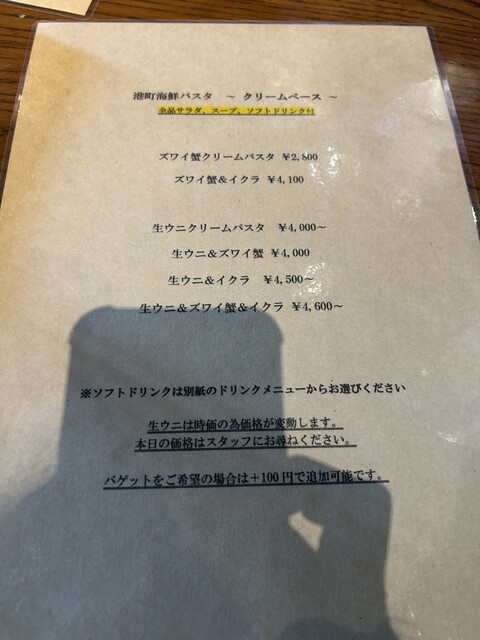 港町海鮮パスタ ~ クリームベース ~
全品サラダ、スープ、ソフトドリンク付
ズワイ蟹クリームパスタ ¥2,800
ズワイ蟹＆イクラ ¥4,100
生ウニクリームパスタ ¥4,000~
生ウニ＆ズワイ蟹 ¥4,000
生ウニ＆イクラ ¥4,500~
生ウニ＆ズワイ蟹＆イクラ ¥4,600~
※ソフトドリンクは別紙のドリンクメニューからお選びください
生ウニは時価の為価格が変動します。
本日の価格はスタッフにお尋ねください。
バゲットをご希望の場合は＋100円で追加可能です。